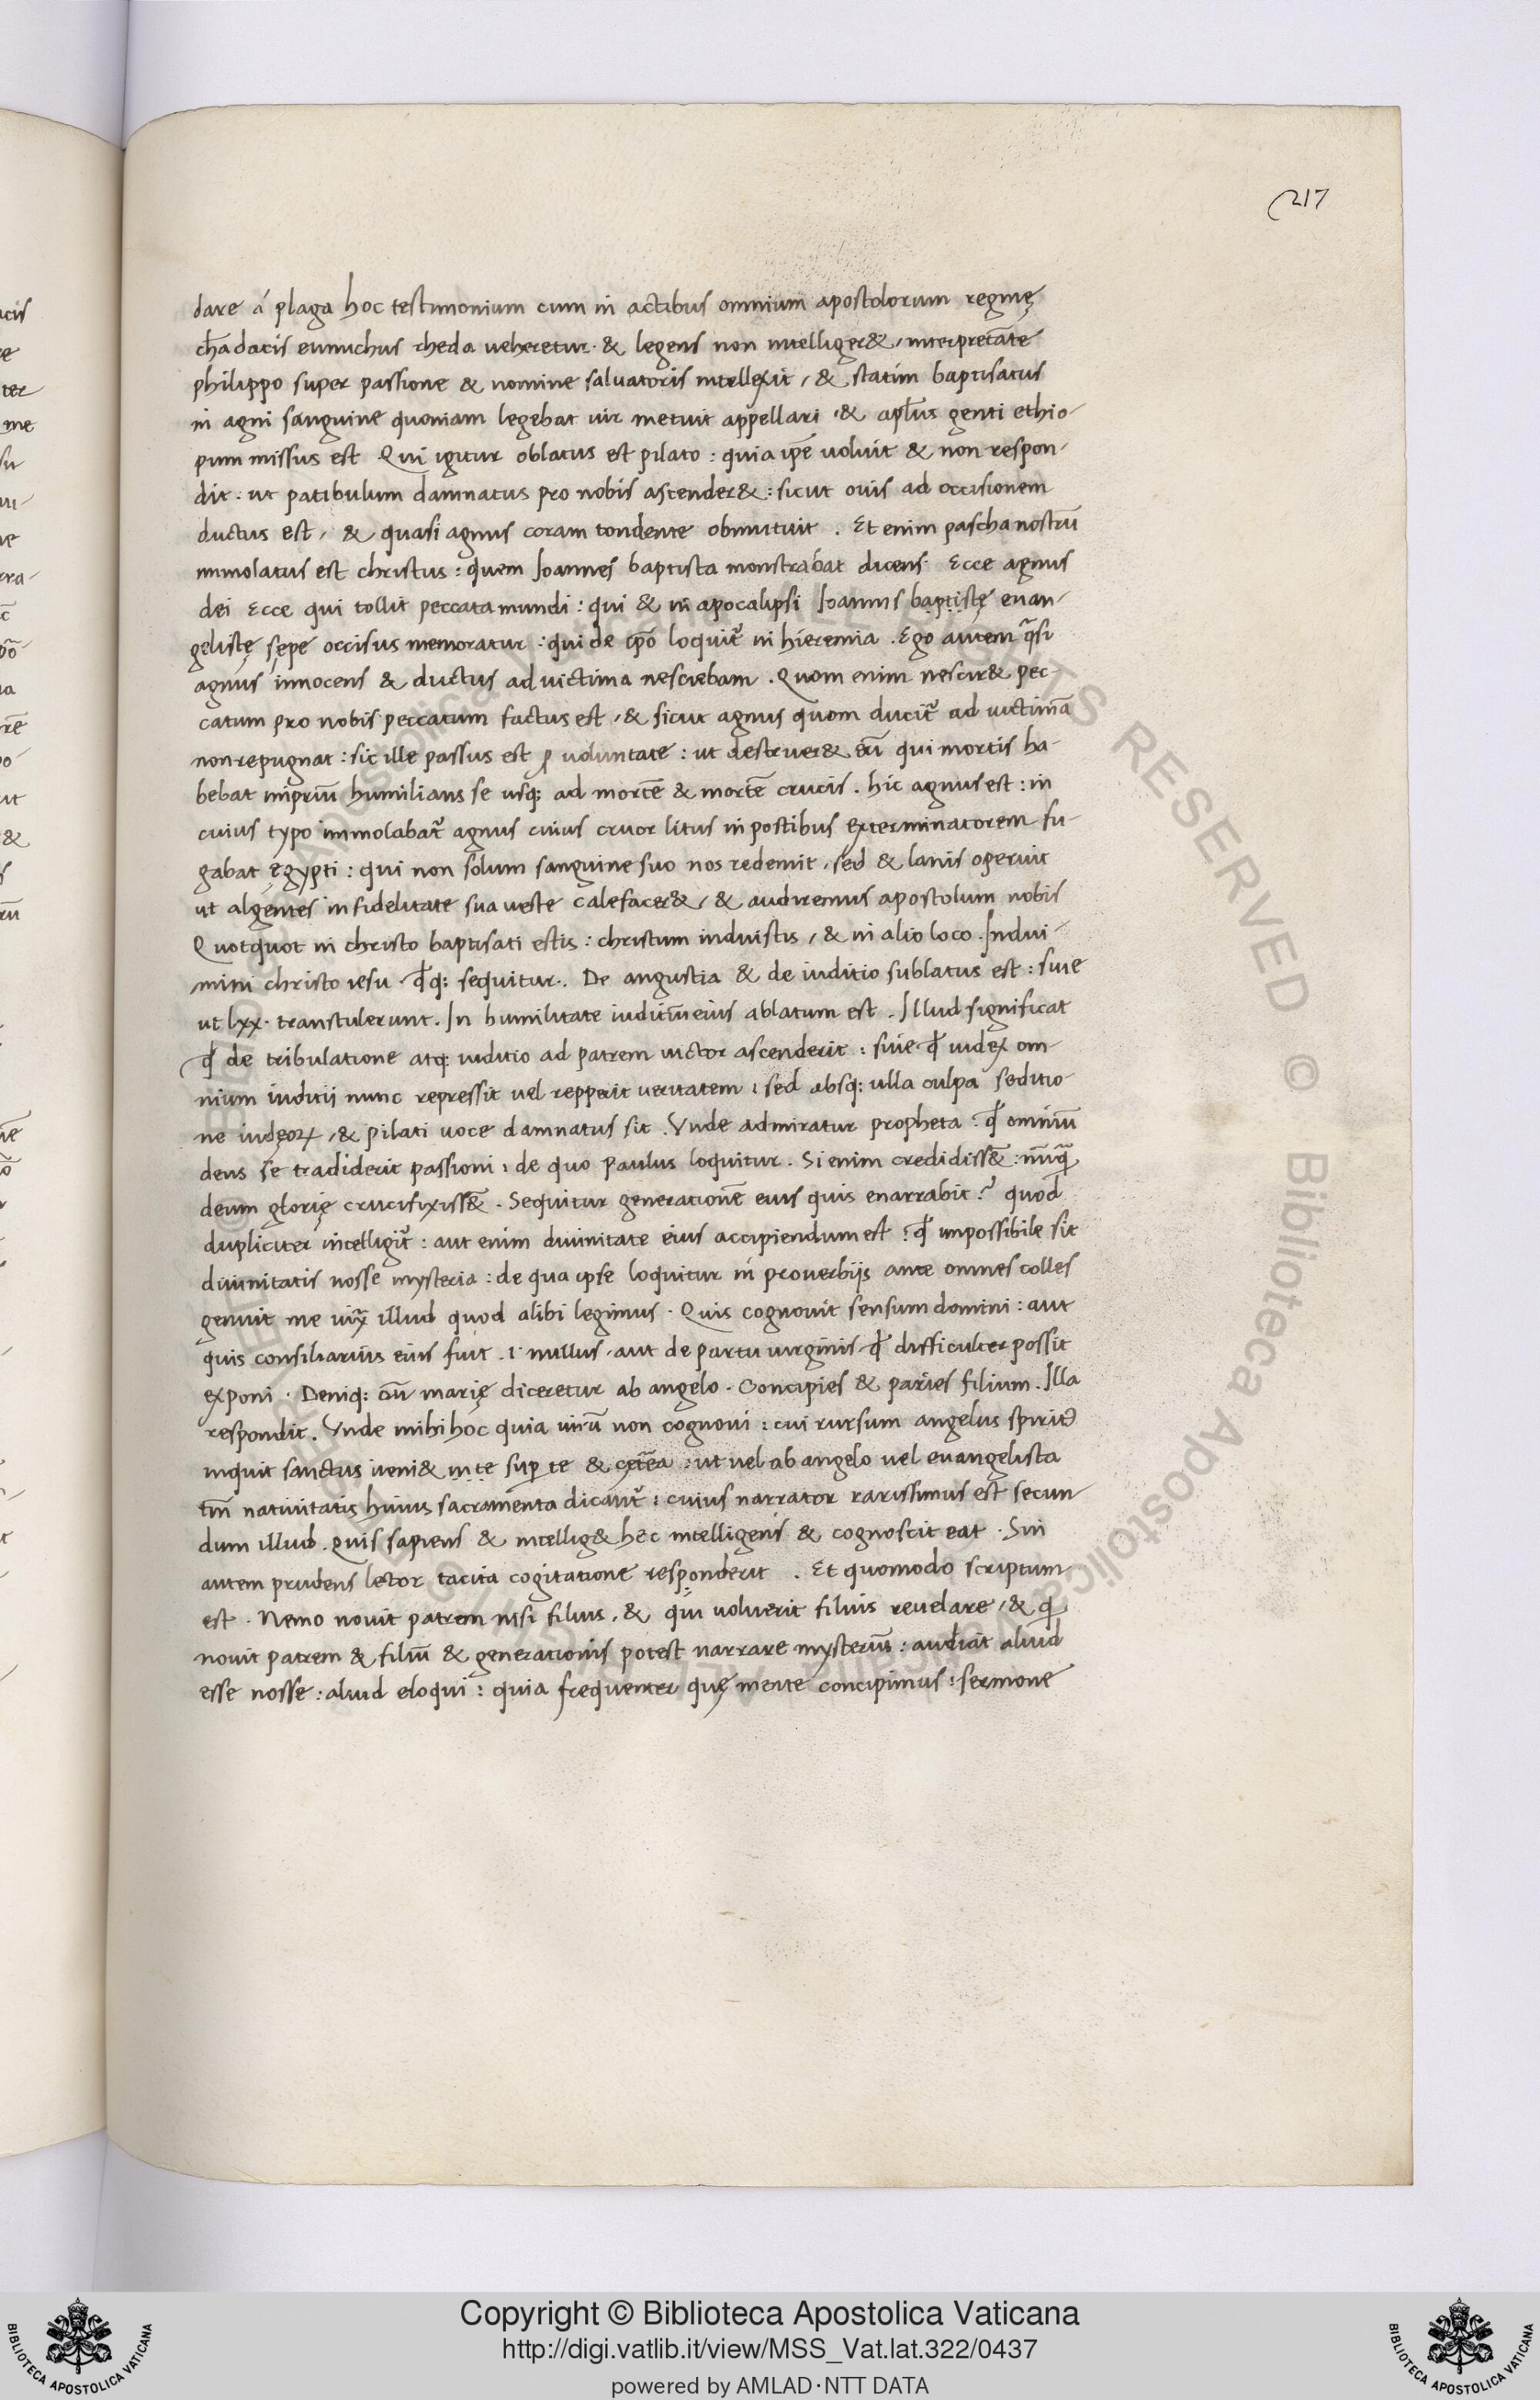 217
dare á plaga hoc testimonium cum in actibus omnium apostolorum reginę
ch̄adacis eunuchus rheda ueheretur · & legens non intelliger& / interpretāte
philippo super passione & nomine saluatoris intellexit / & statim baptisatus
in agni sanguine quoniam legebat uir metuit appellari / & apl̄us genti ethio-
pum missus est . Qui igitur oblatus est pilato : quia ip̄e uoluit & non respon-
dit : ut patibulum damnatus pro nobis ascender& : sicut ouis ad occisionem
ductus est / & quasi agnus coram tondente obmutuit . Et enim pascha nostrū
immolatus est christus : quem Ioannes baptista monstrabat dicens Ecce agnus
dei Ecce qui tollit peccata mundi : qui & in apocalipsi Ioannis baptistę euan-
gelistę sępe occisus memoratur : qui de ip̄o loquit᷑ in hieremia . Ego autem q̃si
agnus innocens & ductus ad uictima nesciebam . Quom enim nescir& pec-
catum pro nobis peccatum factus est / & sicut agnus quom ducit᷑ ad uictimā
non repugnat : sic ille passus est ꝓ uoluntate : ut destruer& eū qui mortis ha-
bebat imꝑiū humilians se usq; ad mortē & mortē crucis . hic agnus est : in
cuius typo immolabat᷑ agnus cuius cruor litus in postibus exterminatorem fu-
gabat ęgypti : qui non solum sanguine suo nos redemit / sed & lanis operuit
ut algentes infidelitate sua ueste calefacer& / & audiremus apostolum nobis
Quotquot in christo baptisati estis : christum induistis / & in alio loco . Indui-
mini christo iesu · ꝙ q; sequitur . De angustia & de iuditio sublatus est : siue
ut lxx · transtulerunt . In humilitate iuditiū eius ablatum est . Illud significat
ꝙ de tribulatione atq; iuditio ad patrem uictor ascenderit : siue ꝙ iudex om-
nium iuditij nunc repressit uel repperit ueritatem : sed absq; ulla culpa seditio-
ne iudęoꝝ / & pilati uoce damnatus sit . Vnde admiratur propheta : ꝙ omniū
deus se tradiderit passioni : de quo paulus loquitur . Si enim credidiss& : nūq̄
deum glorię crucifixiss& . Sequitur generationē eius quis enarrabit ? quod
dupliciter intelligit᷑ : aut enim diuinitate eius accipiendum est : ꝙ impossibile sit
diuinitatis nosse mysteria : de qua ipse loquitur in prouerbijs ante omnes colles
genuit me iux̄ illud quod alibi legimus · Quis cognouit sensum domini : aut
quis consiliarius eius fuit . i · nullus · aut de partu uirginis ꝙ difficulter possit
exponi · Deniq; cū marię diceretur ab angelo . Concipies & paries filium . Illa
respondit . Vnde mihi hoc quia uirū non cognoui : cui rursum angelus spirit᷒
inquit sanctus ueni& in te suꝑ te & cętēa : ut uel ab angelo uel euangelista
tm̄ natiuitatis huius sacramenta dicant᷑ : cuius narrator rarissimus est secun
dum illud . quis sapiens & intellig& hęc intelligens & cognoscit eat . Sin
autem prudens lector tacita cogitatione responderit . Et quomodo scriptum
est . Nemo nouit patrem nisi filius / & qui uoluerit filius reuelare / & q̄
nouit patrem & filiū & generationis potest narrare mysteriū : audiat aliud
esse nosse : aliud eloqui : quia frequenter quę mente concipimus : sermone
Copyright © Biblioteca Apostolica Vaticana
http://digi.vatlib.it/view/MSS_Vat.lat.322/0437
powered by AMLAD·NTT DATA